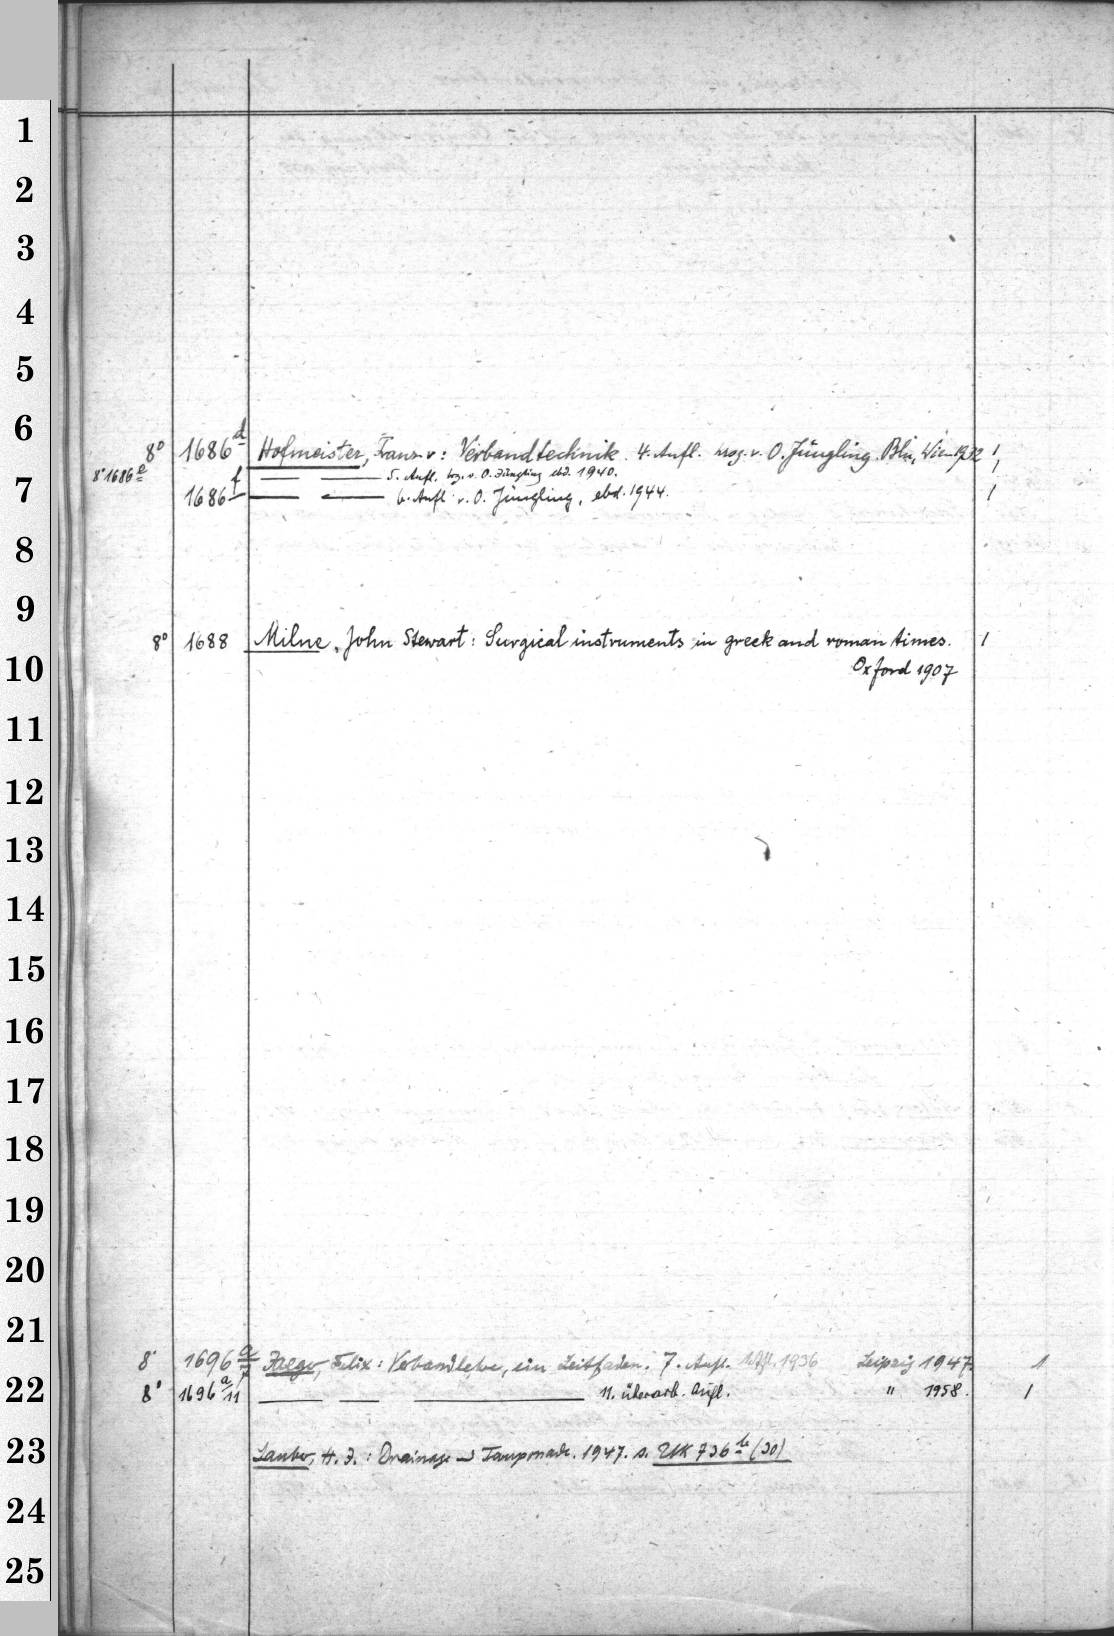 1
2
3
4
5
6
8° 1686 d Hofmeister, Franz v: Verbandtechnik. 4. Aufl. hrsg. v. O. Jüngling. Bln, Wien 1932 1
8° 1686 e — — 5. Aufl. hrg. v. O. Jüngling ebd. 1940. 1
7
1686 f — — 6. Aufl. v. O. Jüngling, ebd. 1944. 1
8
9
8° 1688 Milne, John Stewart: Surgical instruments in greek and roman times. 1
10
Oxford 1907
11
12
13
14
15
16
17
18
19
20
21
8° 1696 a/7 Jaeger, Felix: Verbandlehre, ein Leitfaden. 7. Aufl. 1936 Leipzig 1947. 1
22
8° 1696 a/11 — — — 11. überarb. Aufl. " 1958. 1
23
Lauber, H. J.: Drainage Tamponade. 1947. s. UK 736 (30)
24
25